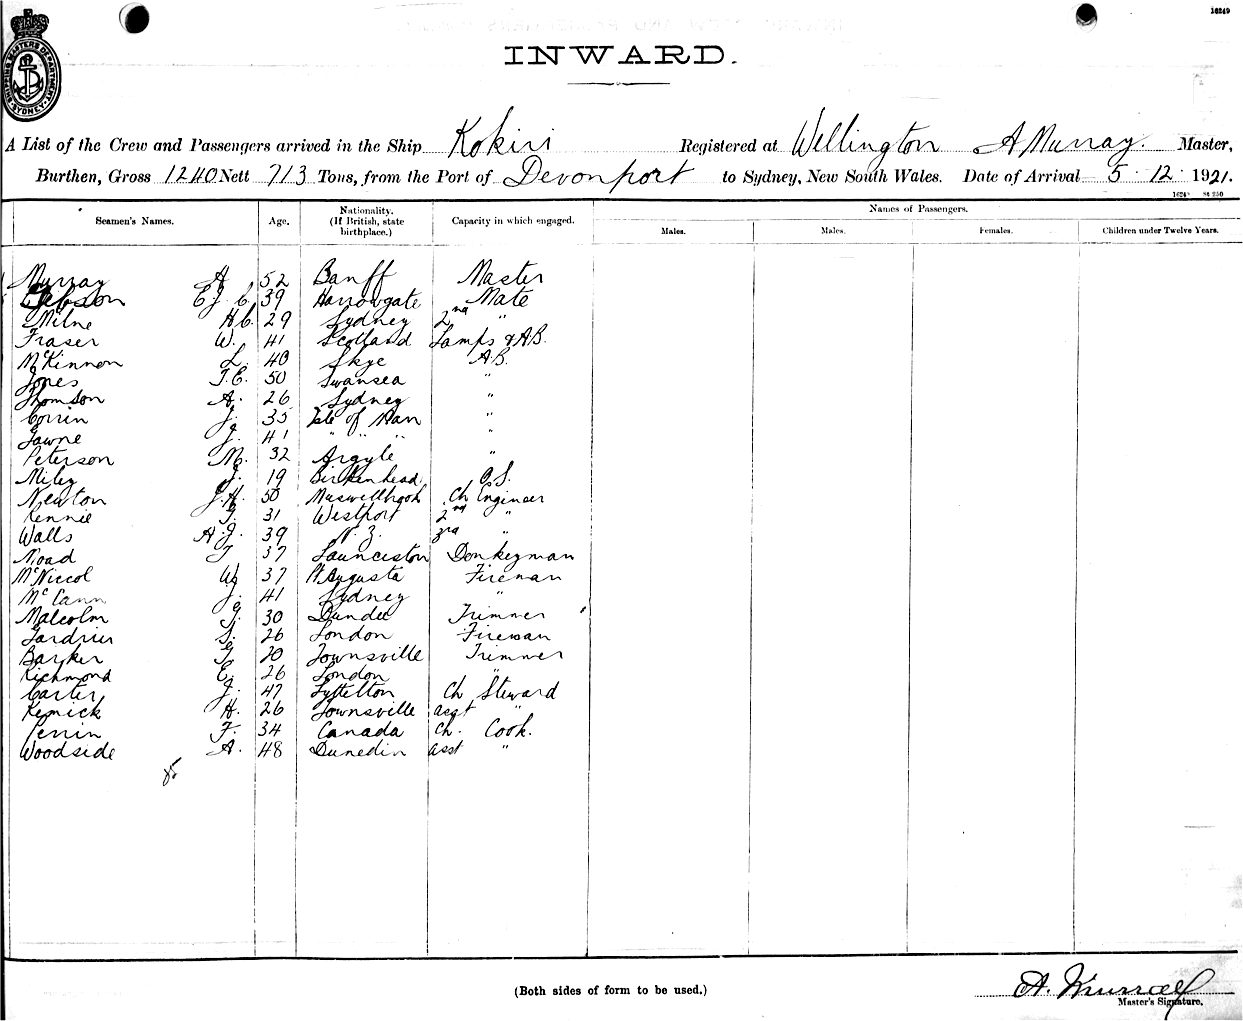 16249
SHIPPING MASTERS DEPARTMENT SYDNEY
INWARD.
A List of the Crew and Passengers arrived in the Ship Kokiri Registered at Wellington A Murray. Master,
Burthen, Gross 1240 Nett 713 Tons, from the Port of Devonport to Sydney, New South Wales. Date of Arrival 5. 12. 1921.
Seamen's Names. Age. Nationality. (If British, state birthplace.) Capacity in which engaged. Names of Passengers.
Males. Males. Females. Children under Twelve Years.
Murray A 52 Banff Master
Gibson E J C 39 Harrowgate Mate
Milne H C. 29 Sydney 2nd "
Fraser W. 41 Scotland Lamps & AB.
McKinnon L. 40 Skye A.B.
Jones T. E. 50 Swansea "
Thomson A. 26 Sydney "
Corrin J. 35 Isle of Man "
Gawne J. 41 " " " "
Peterson M. 32 Argyle "
Miley J. 19 Birkenhead O.S.
Newton J. H. 50 Muswellbrook Ch Engineer
Rennie T. 31 Westport 2nd "
Walls A. J. 39 N. Z. 3rd "
Noad T 37 Launceston Donkeyman
McNiccol W. 37 Pt Augusta Fireman
McCann J. 41 Sydney "
Malcolm G. 30 Dundee Trimmer
Gardiner S. 26 London Fireman
Barker G. 20 Townsville Trimmer
Richmond E. 26 London "
Carter J. 47 Lyttelton Ch Steward
Kemick H. 26 Townsville asst "
Perrin F. 34 Canada Ch. Cook.
Woodside A. 48 Dunedin asst "
(Both sides of form to be used.)
A. Murray
Master's Signature.